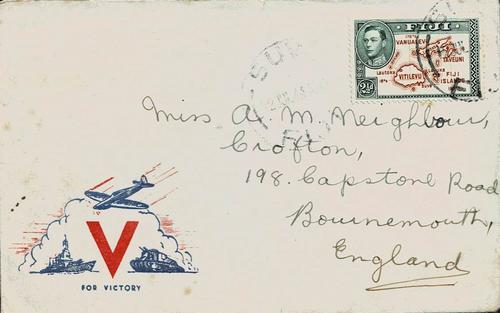 FIJI
VANUALEVU
TAVEUNI
LAUTOKA
VITILEVU
FIJI
ISLANDS
SUVA
2½d
Miss A. M. Neighbour,
Crofton,
198. Capstone Road
Bournemouth,
England
V
FOR VICTORY